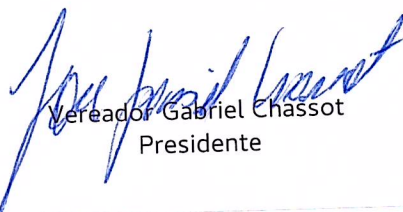 Vereador Gabriel Chassot
Presidente